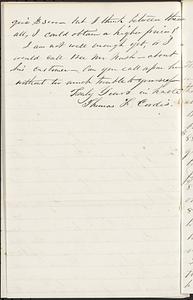 but I think between them
all, I could obtain a higher price!
I am not well enough yet, or I
would call see Mr about
his customer— Can you call upon him
without too much trouble to yourself
Truly Yours in haste
Thomas F.